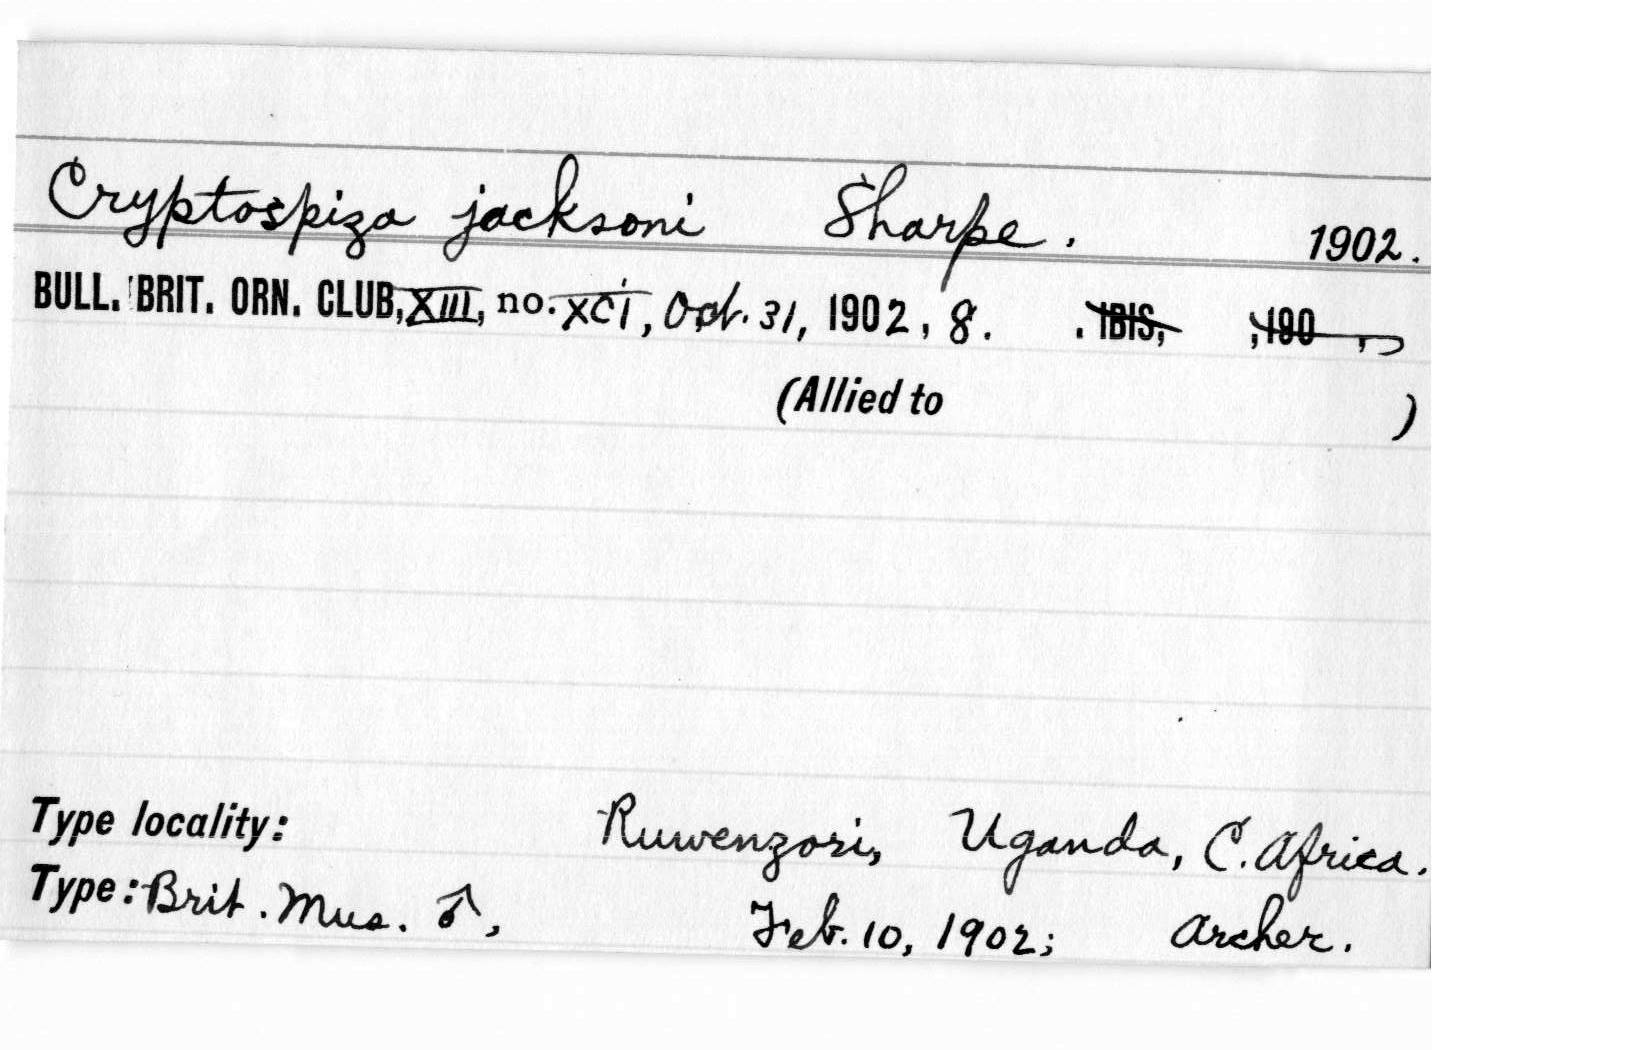 Cryptospiza jacksoni Sharpe. 1902.
BULL. BRIT. ORN. CLUB, XIII, no. XCI, Oct. 31, 1902, 8. . IBIS, ,190 ,
(Allied to )
Type locality: Ruwenzori, Uganda, C. Africa.
Type: Brit. Mus. ♂, Feb. 10, 1902; Archer.